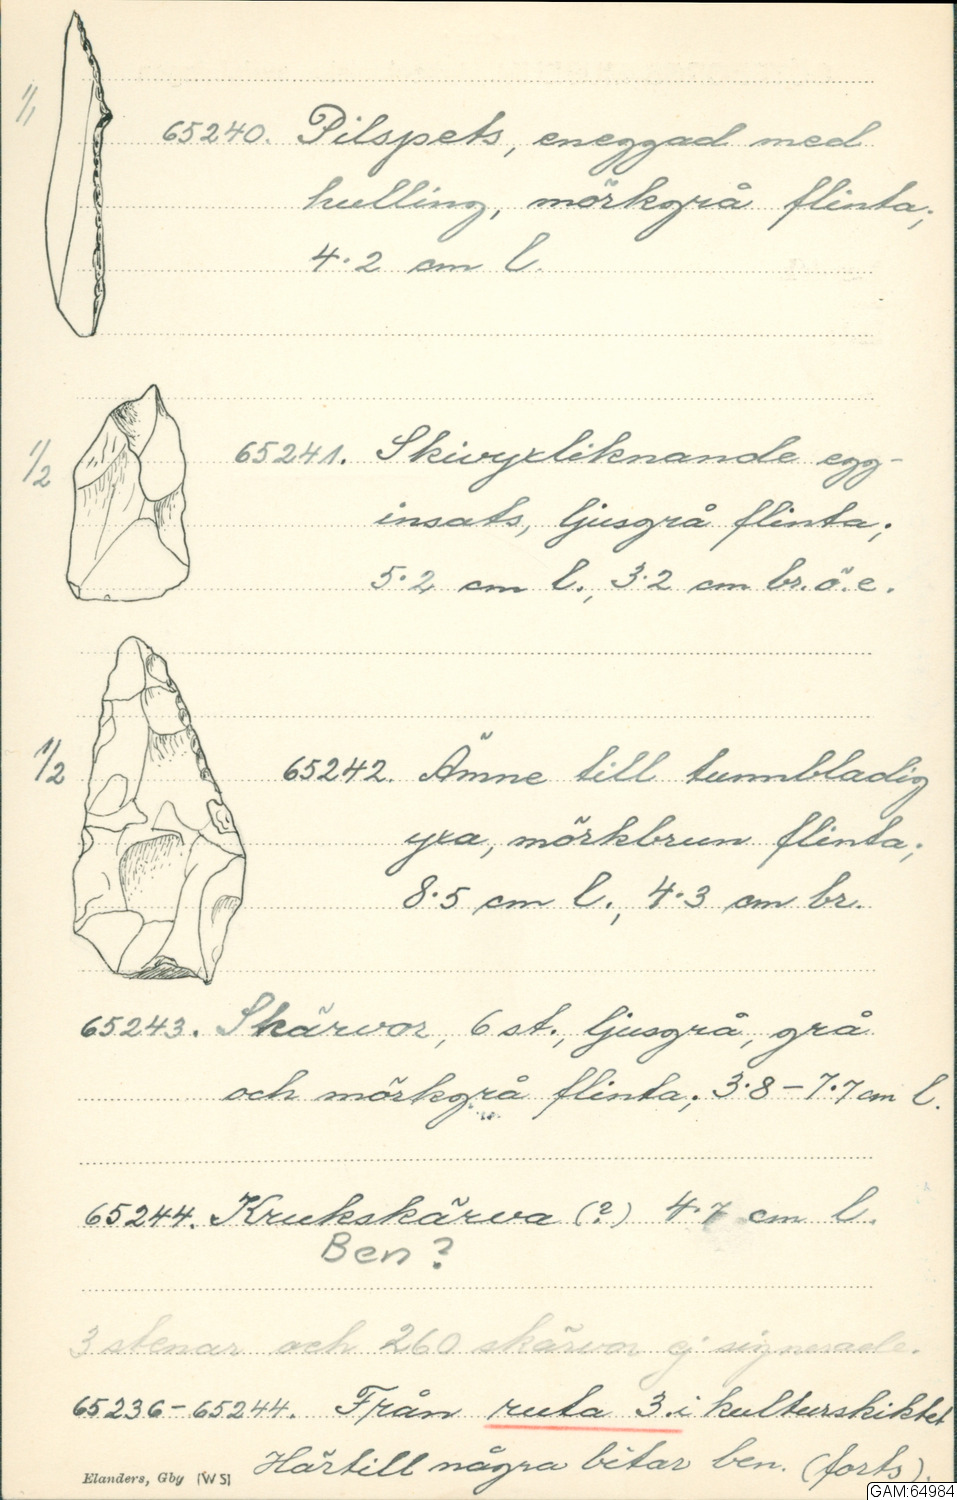 1/1
65240. Pilspets, eneggad med
hulling, mörkgrå flinta;
4·2 cm l.
1/2
65241. Skivyxliknande egg-
insats, ljusgrå flinta;
5·2 cm l., 3·2 cm br. ö. e.
1/2
65242. Ämne till tunnbladig
yxa, mörkbrun flinta;
8·5 cm l., 4·3 cm br.
65243. Skärvor, 6 st., ljusgrå, grå
och mörkgrå flinta; 3·8 – 7·7 cm l.
65244. Krukskärva (?) 4·7 cm l.
Ben ?
3 stenar och 260 skärvor ej signerade.
65236–65244. Från ruta 3 i kulturskiktet
Härtill några bitar ben. (forts).
Elanders, Gbg (WS)
GAM:64984